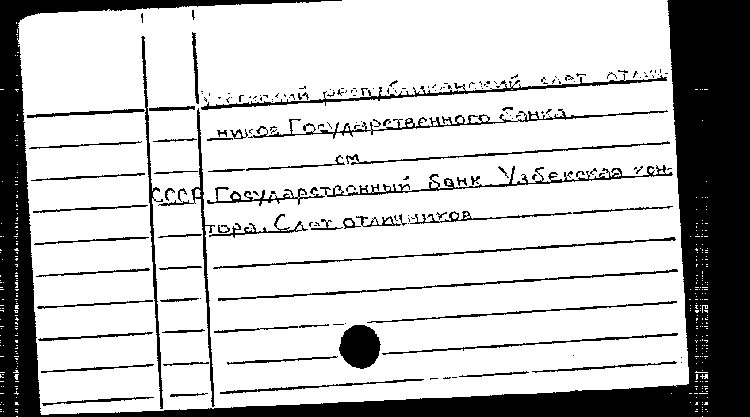 Узбекский республиканский слет отлич-
ников Государственного банка.
см.
СССР. Государственный банк Узбекская кон-
тора. Слет отличников